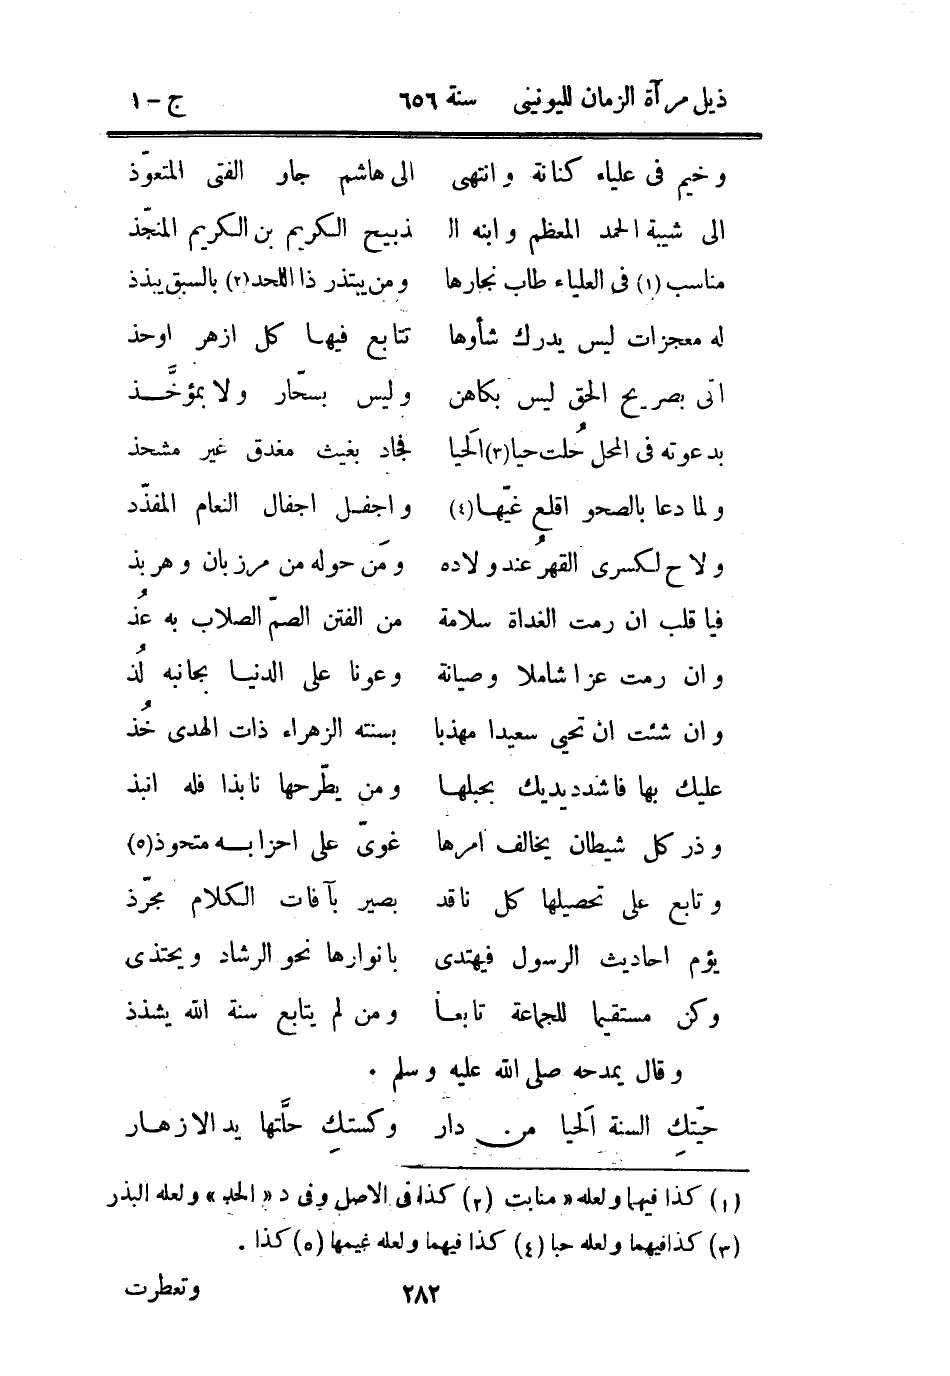 ذيل مرآة الزمان لليونينى سنة ٦٥٦ ج - ١
و خيم فى علياء كنانة و انتهى الى هاشم جار الفتى المتعوّذ
الى شيبة الحمد المعظم و ابنه الـ ذبيح الكريم بن الكريم المنجّذ
مناسب (١) فى العلياء طاب نجارها و من يبتذر ذا اللحد (٢) بالسبق يبذذ
له معجزات ليس يدرك شأوها تتابع فيها كل ازهر اوحذ
اتى بصريح الحق ليس بكاهن و ليس بسحّار و لا بمؤخَّـــذ
بدعوته فى المحل حُلت حيا (٣) الَحيا فجاد بغيث مغدق غير مشحذ
و لما دعا بالصحو اقلع غيّهـا (٤) و اجفـل اجفال النعام المفذّد
و لاح لكسرى القهرُ عند ولاده و مَن حوله من مرزبان و هربذ
فيا قلب ان رمت الغداة سلامة من الفتن الصمّ الصلاب به عُذ
و ان رمت عزا شاملا و صيانة و عونا على الدنيـا بجانبه لُذ
و ان شئت ان تحيى سعيدا مهذبا بسنته الزهراء ذات الهدى خُذ
عليك بها فاشدد يديك بحبلهـا و من يطّرحها نابذا فله انبذ
و ذر كل شيطان يخالف امرها غوىّ على احزابـــه متحوذ (٥)
و تابع على تحصيلها كل ناقد بصير بآفات الكلام مجرّذ
يؤم احاديث الرسول فيهتدى بانوارها نحو الرشاد و يحتذى
و كن مستقيما للجماعة تابعـا و من لم يتابع سنة الله يشذذ
و قال يمدحه صلى الله عليه و سلم .
حيّتكِ السنة الَحيا من دار و كستكِ حلَّتها يد الازهـار
(١) كذا فيهما و لعله « منابت (٢) كذا فى الاصل و فى د « الحد » و لعله البذر
(٣) كذا فيهما و لعله حبا (٤) كذا فيهما و لعله غيمها (٥) كذا .
٢٨٢ و تعطرت